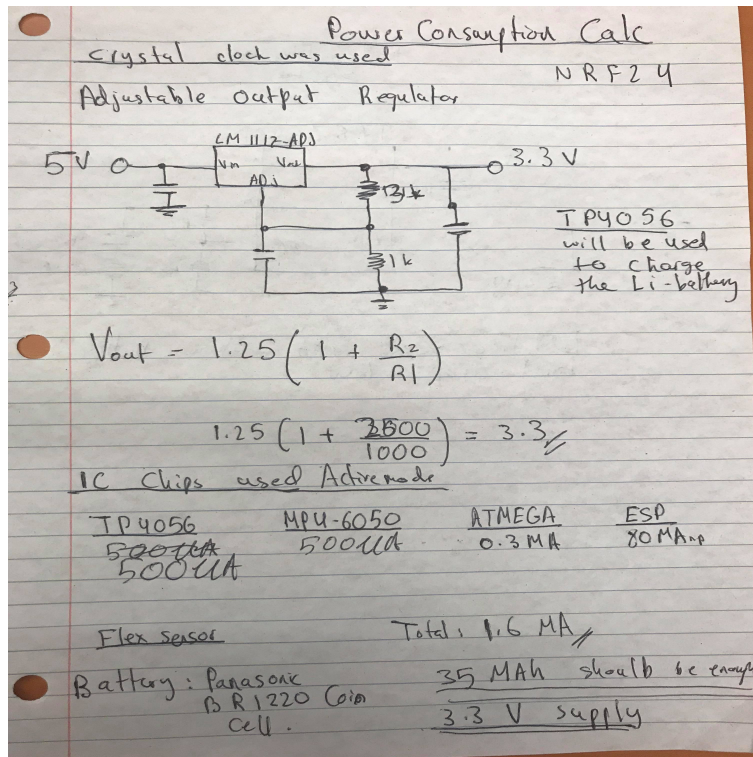 Power Consumption Calc
crystal clock was used
NRF24
Adjustable Output Regulator
LM 1112-ADJ
5V
Vin
Vout
ADj
3.3 V
1k
TP4056
will be used
to charge
the Li-battery
Vout = 1.25 ( 1 + R2/R1 )
1.25 ( 1 + /1000 ) = 3.3
IC Chips used Active mode
TP4056 MPU-6050 ATMEGA ESP
500uA 500uA 0.3 MA 80 MAmp
500uA
Flex sensor
Total: 1.6 MA
Battery: Panasonic
BR1220 Coin
Cell.
35 MAh should be enough
3.3 V supply